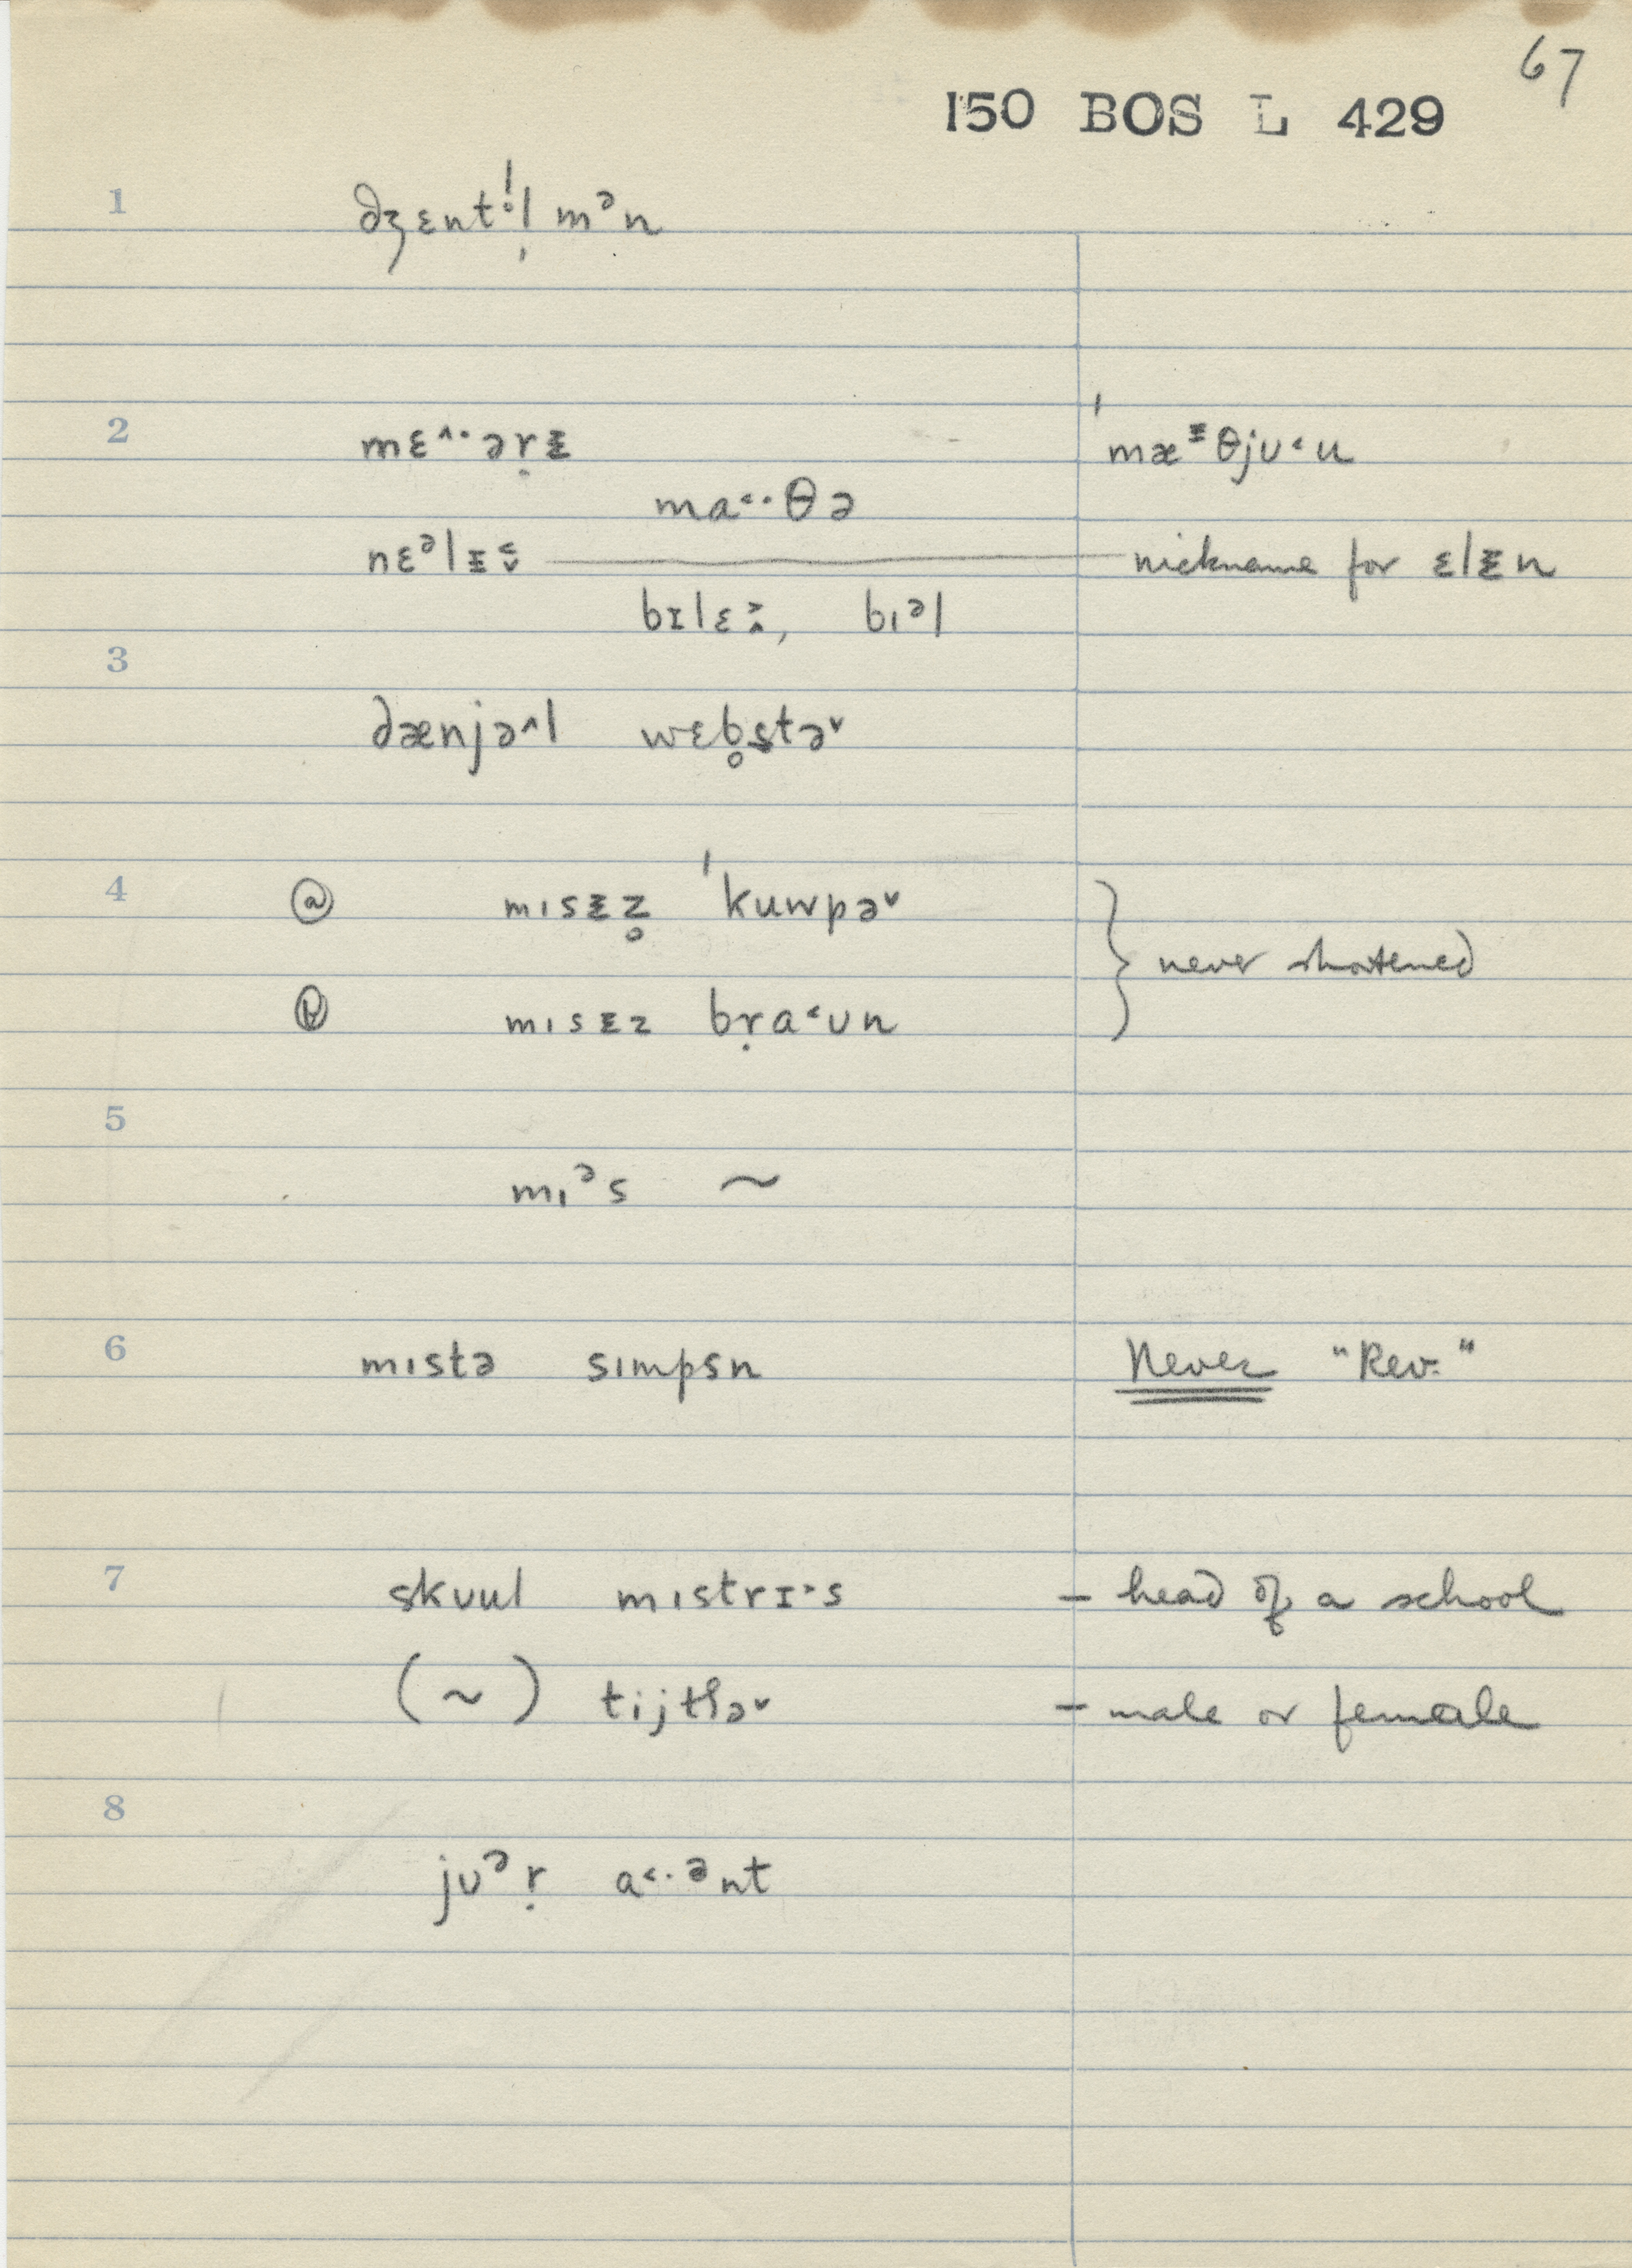 67
150 BOS L 429
1 dʒɛntl̩mᵊn
2 mɛ˄·ərᵻ ˈmæᵻθjʊ˂u
ma˂·θə
nɛᵊlᵻ nickname for ɛlᵻn
bɪlɛ, bɪᵊl
3
dænjə˄l wɛb̥stə˅
4 ⓐ mɪsᵻz̥ ˈkuwpə˅
never shortened
ⓑ mɪsᵻz bṛa˂ʊn
5
mɪᵊs ~
6 mɪstə sɪmpsn Never "Rev."
7 skʊul mɪstrɪ˃s – head of a school
(~) tijtʃə˅ – male or female
8
jʊᵊṛ a˂·ᵊnt